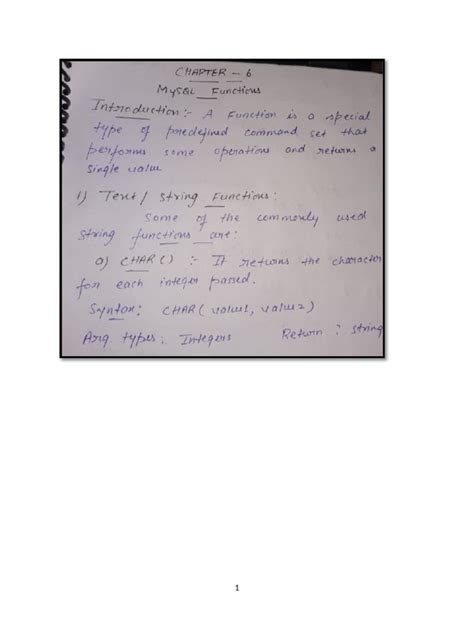 CHAPTER - 6
MySQL Functions
Introduction :- A Function is a special
type of predefined command set that
performs some operations and returns a
single value
1) Text / String Functions :
Some of the commonly used
string functions are :
a) CHAR() :- It returns the character
for each integer passed.
Syntax : CHAR( value1, value2)
Arg types : Integers Return : string
1